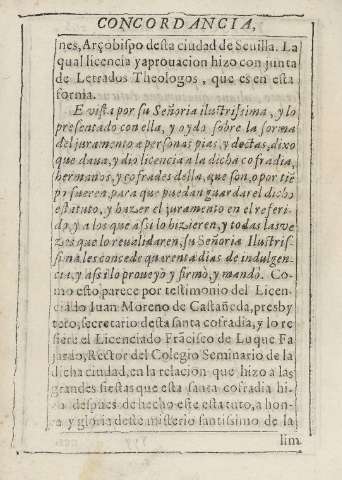 CONCORDANCIA,
nes, Arçobispo desta ciudad de Seuilla. La
qual licencia y aprouacion hizo con junta
de Letrados Theologos, que es en esta
forma.
E vista por su Señoria ilustrissima, y lo
presentado con ella, y oydo sobre la forma
del juramento a personas pias, y doctas, dixo
que daua, y dio licencia a la dicha cofradia,
hermanos, y cofrades della, que son, o por tiē
pò fueren, para que puedan guardar el dicho
estatuto, y hazer el juramento en el referi-
do, y a los que assi lo hizieren, y todas las ve
zes que lo reualidaren, su Señoria Ilustris-
sima les concede quarenta dias de indulgen-
cia, y assi lo proueyo y firmò, y mandò. Co
mo esto parece por testimonio del Licen
ciado Iuan Moreno de Castañeda, presby
tero, secretario desta santa cofradia, y lo re
fiere el Licenciado Frãcisco de Luque Fa
jardo, Rector del Colegio Seminario de la
dicha ciudad, en la relacion que hizo a las
grandes fiestas que esta santa cofradia hi-
zo despues de hecho este estatuto, a hon-
ra y gloria deste misterio santissimo de la
lim